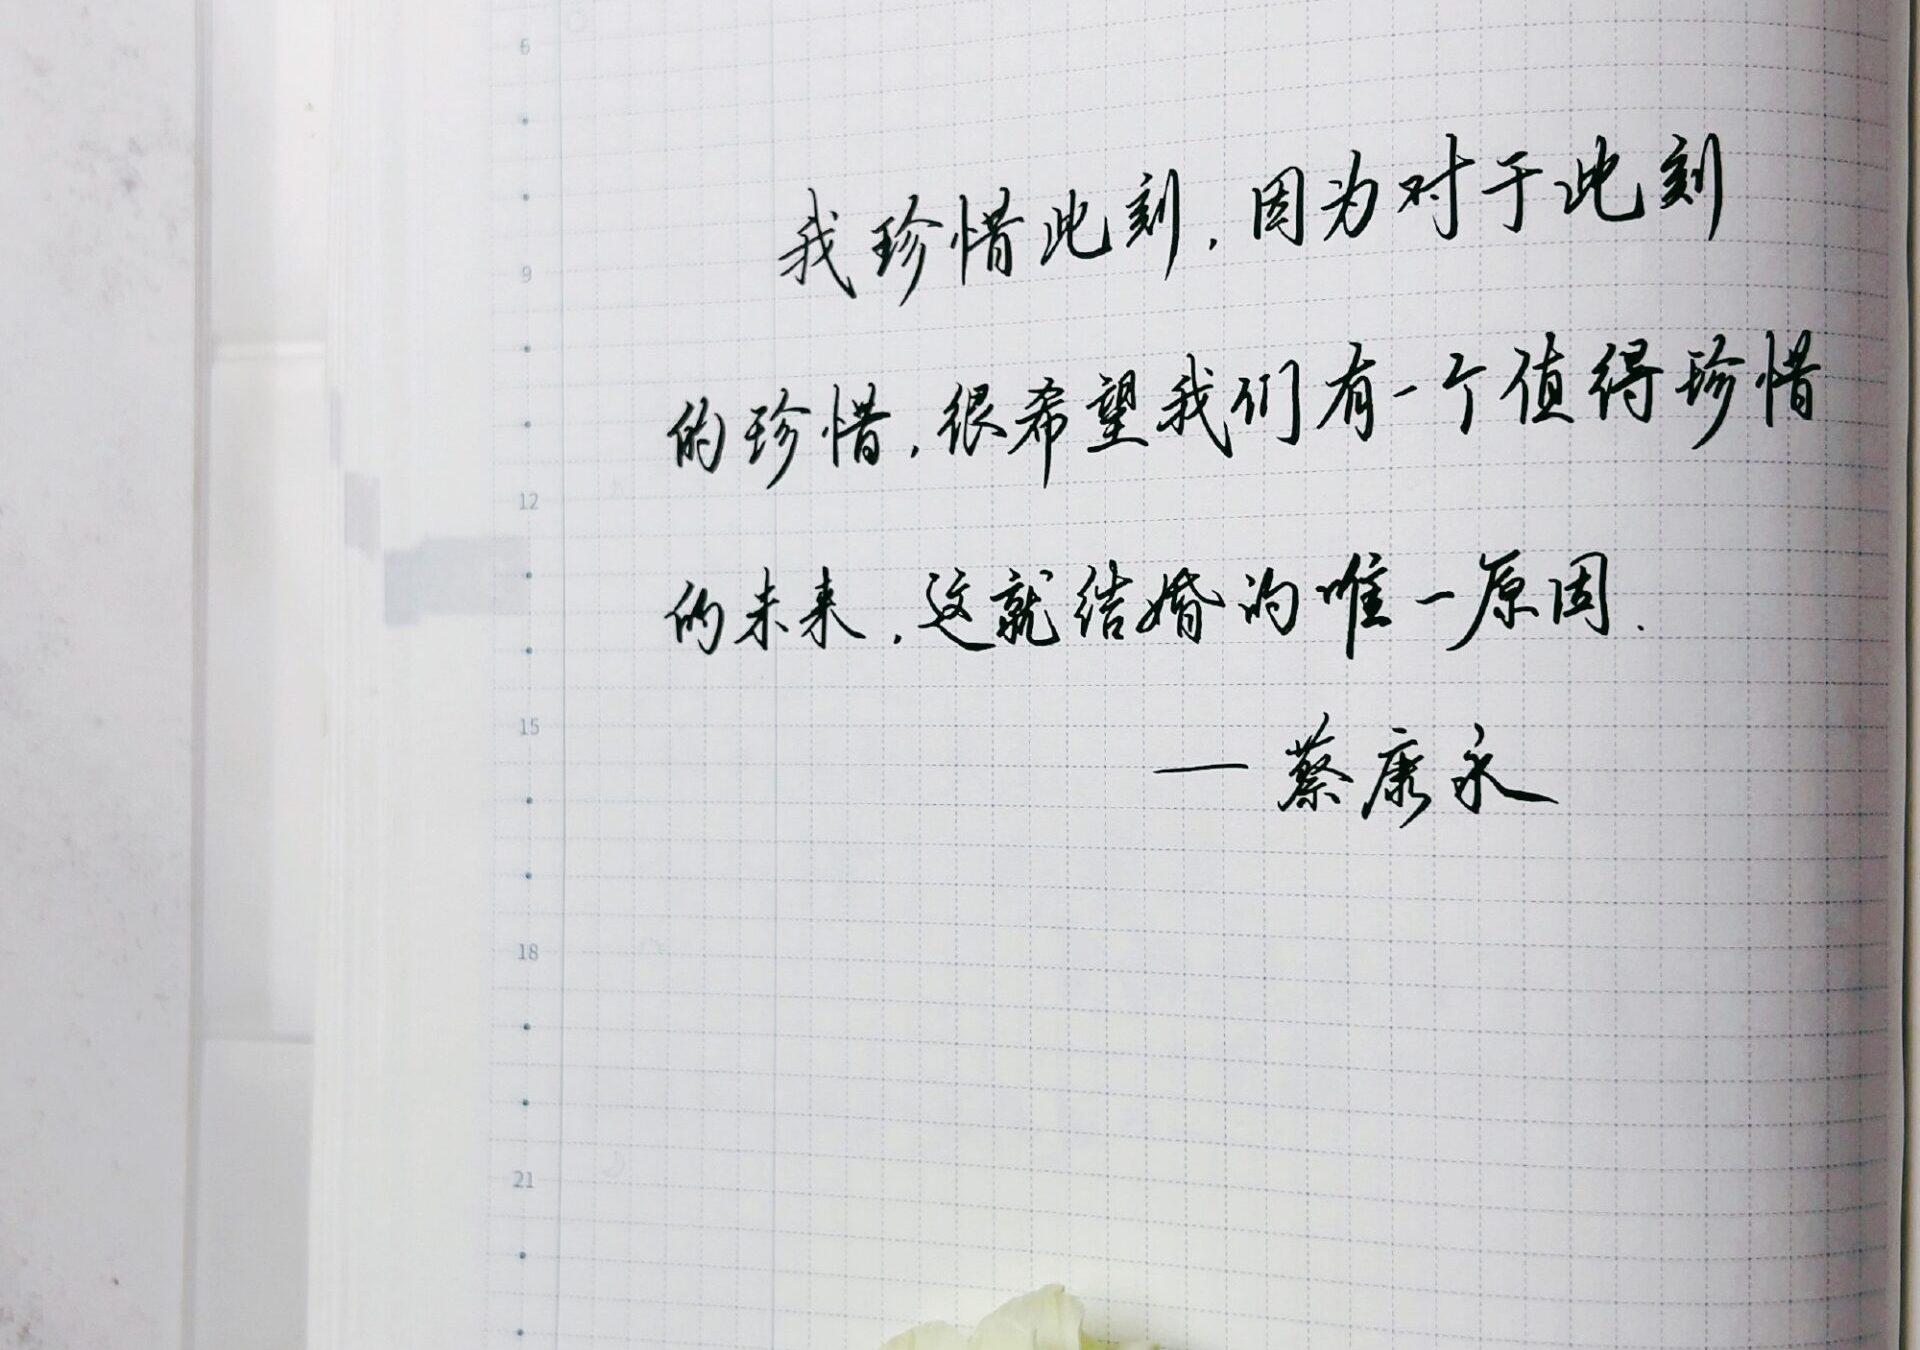 6
我珍惜此刻，因为对于此刻
9
的珍惜，很希望我们有一个值得珍惜
12
的未来，这就结婚的唯一原因.
15
—蔡康永
18
21